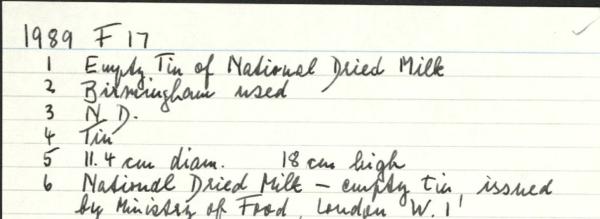 1989 F 17
1 Empty Tin of National Dried Milk
2 Birmingham used
3 N.D.
4 Tin
5 11.4 cm diam. 18 cm high
6 National Dried Milk – empty tin, issued
by Ministry of Food, London W.1'